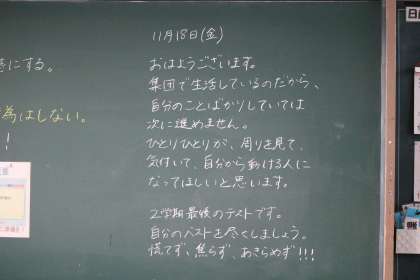 11月18日(金)
おはようございます。
集団で生活しているのだから、
自分のことばかりしていては
次に進めません。
ひとりひとりが、周りを見て、
気付いて、自分から動ける人に
なってほしいと思います。
2学期最後のテストです。
自分のベストを尽くしましょう。
慌てず、焦らず、あきらめず!!!
にする。
為はしない。
!